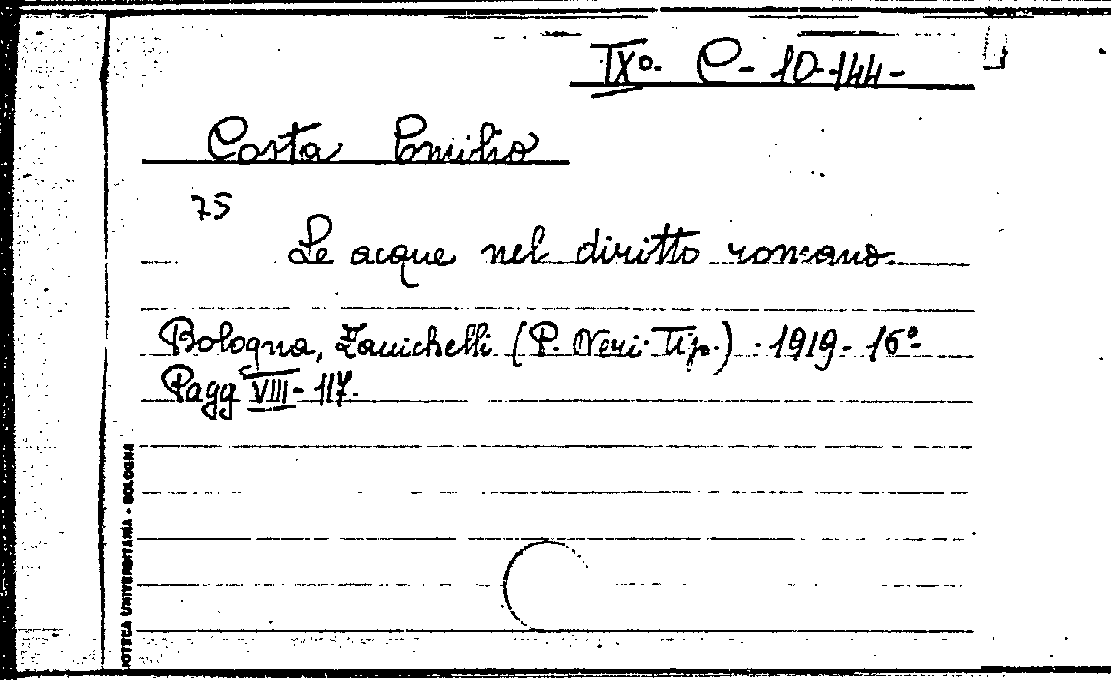 IXº. C- 10-144-
Costa Emilio
75
Le acque nel diritto romano.
Bologna, Zanichelli (P. Neri. Tip.) . 1919- 16º-
Pagg VIII- 117.
OTECA UNIVERSITARIA - BOLOGNA